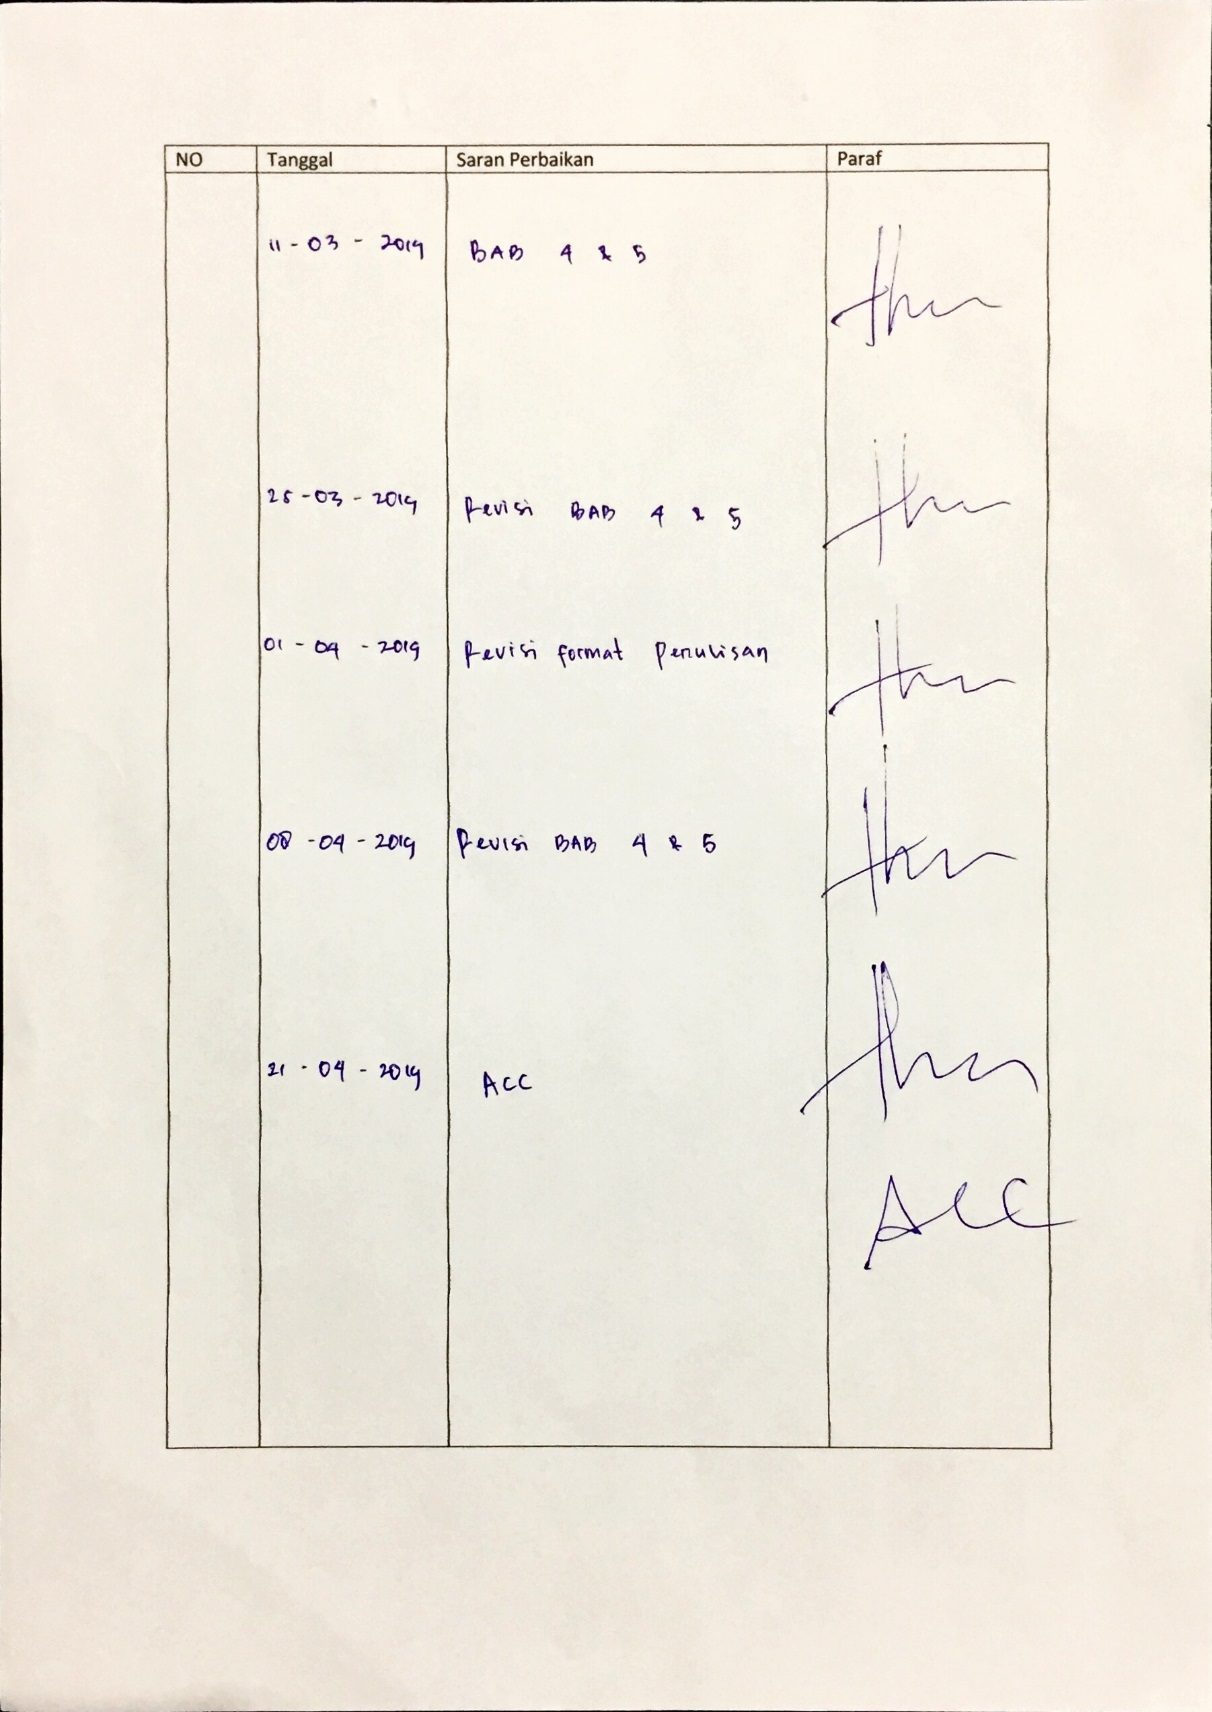 NO Tanggal Saran Perbaikan Paraf
11 - 03 - 2019 BAB 4 & 5
25 - 03 - 2019 Revisi BAB 4 & 5
01 - 04 - 2019 Revisi format penulisan
08 - 04 - 2019 Revisi BAB 4 & 5
21 - 04 - 2019 ACC
ACC